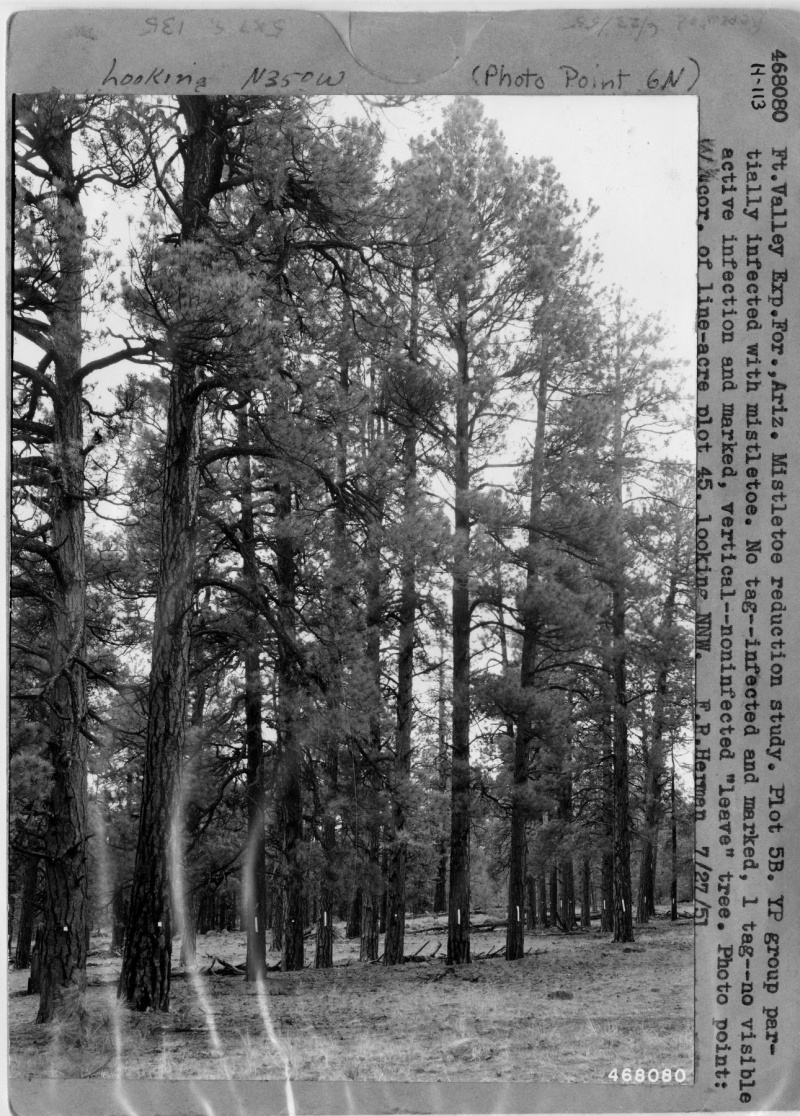 Looking N35°W (Photo Point 6N)
468080
H-113
Ft.Valley Exp.For.,Ariz. Mistletoe reduction study. Plot 5B. YP group par-
tially infected with mistletoe. No tag--infected and marked, 1 tag--no visible
active infection and marked, vertical--noninfected "leave" tree. Photo point:
cor. of line-acre plot 45, looking NNW. F.R.Herman 7/27/51
468080